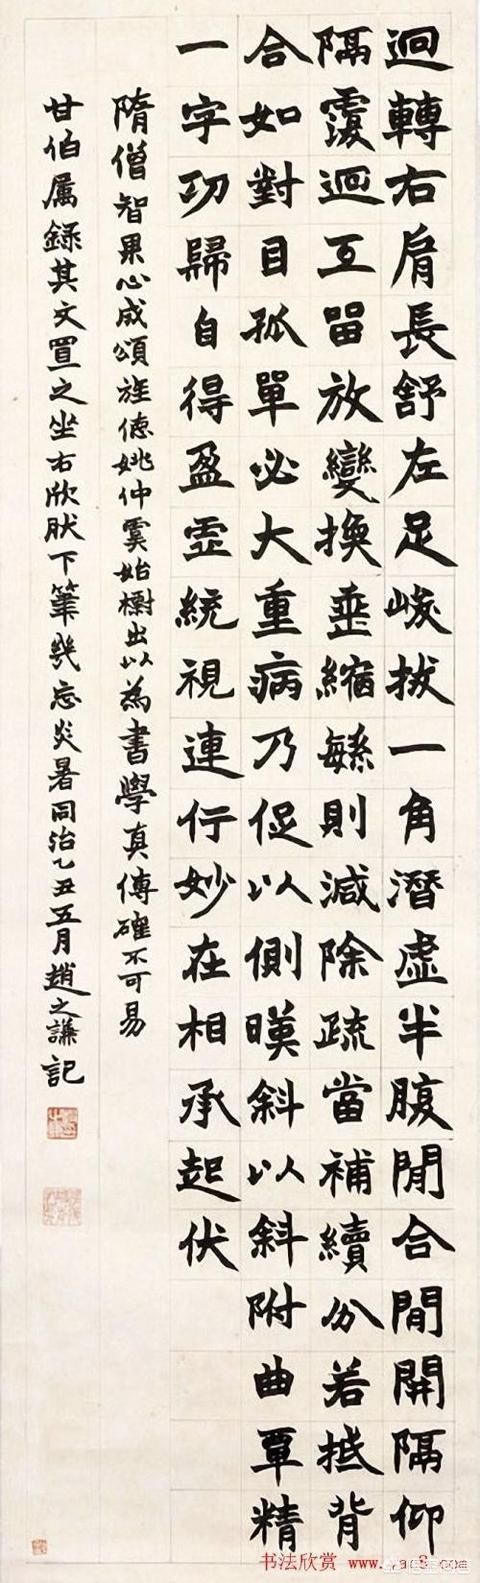 迴轉右肩長舒左足峻拔一角潛虛半腹閒合閒開隔仰
隔覆迴互留放變換垂縮緐則減除疏當補續分若抵背
合如對目孤單必大重病乃促以側暎斜以斜附曲覃精
一字功歸自得盈虛統視連行妙在相承起伏
隋僧智果心成頌旌德姚仲虞始櫥出以為書學真傳確不可易
甘伯屬錄其文置之坐右欣肰下筆幾忘炎暑同治乙丑五月趙之謙記
书法欣赏